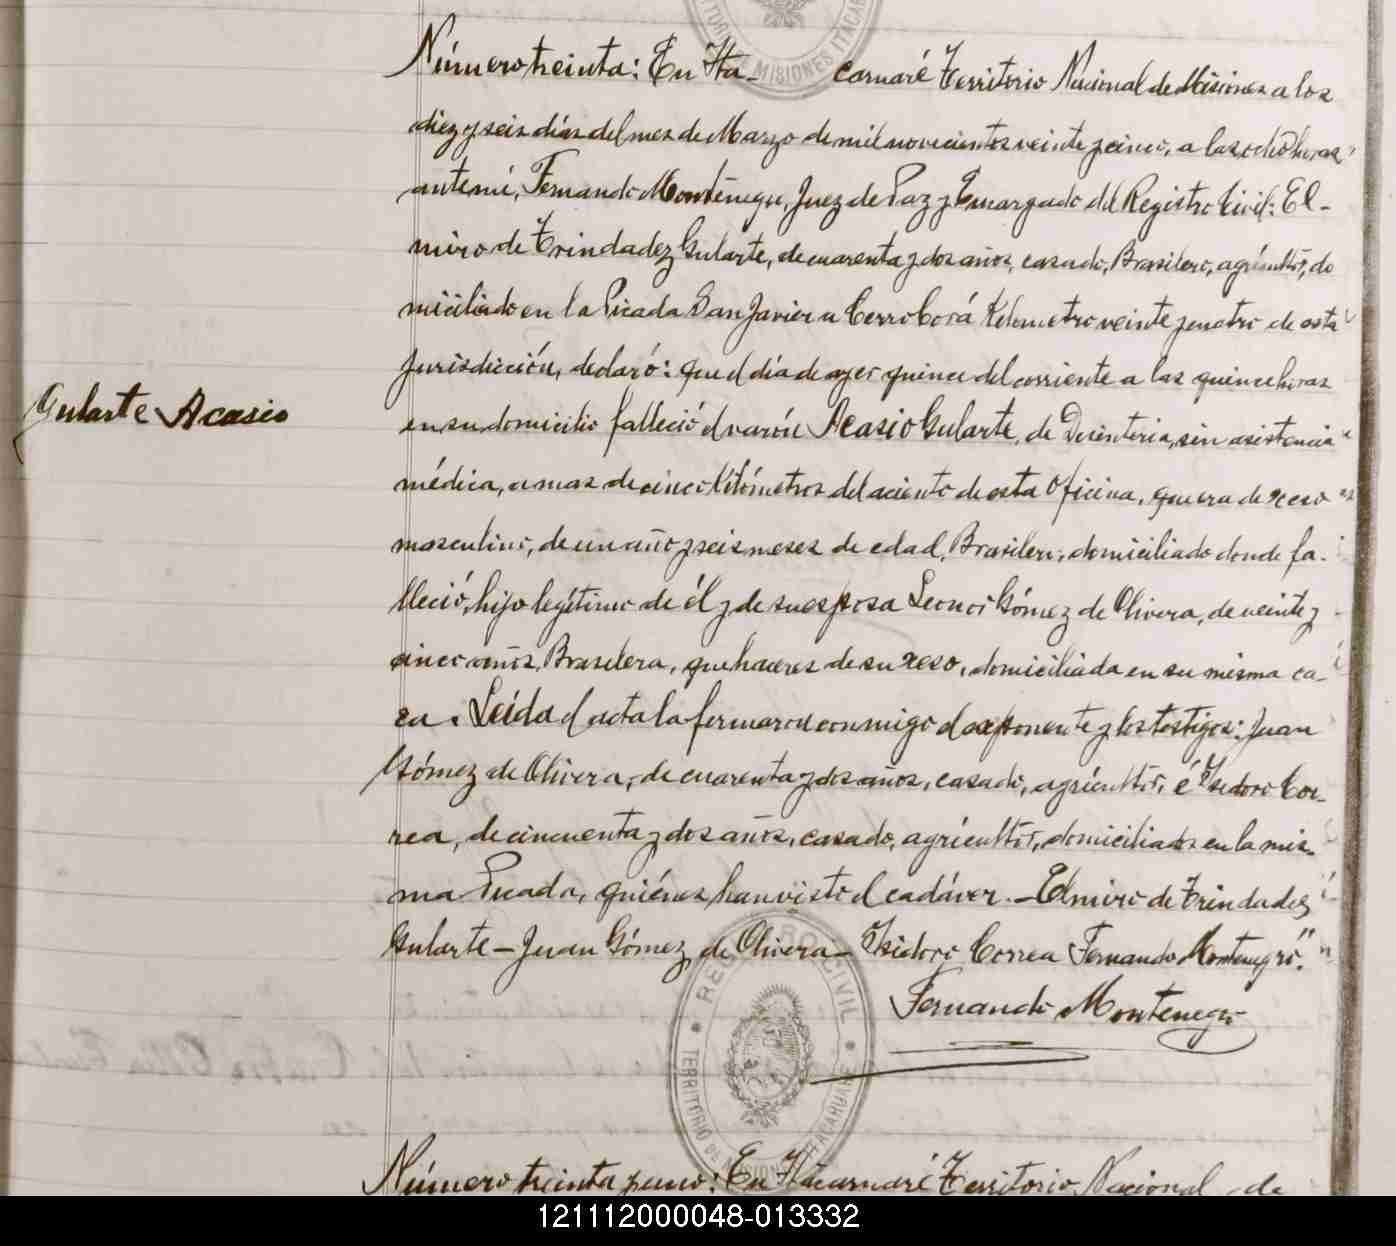 Número treinta: En Ita- caruaré Territorio Nacional de Misiones a los
diez y seis días del mes de Marzo de mil novecientos veinte y cinco, a las ocho horas
ante mí, Fernando Montenegro, Juez de Paz y Encargado del Registro Civil: El-
miro de Trindadez Gularte, de cuarenta y dos años, casado, Brasilero, agricultor, do
miciliado en la Picada San Javier a Cerro Corá Kelometro veinte y cuatro de esta
jurisdicción, declaró: que el día de ayer quince del corriente a las quince horas
Gularte Acasio
en su domicilio falleció el varón Acasio Gularte, de Desinteria, sin asistencia
médica, a mas de cinco kilómetros del aciento de esta Oficina, que era de xeso
masculino, de un año y seis meses de edad, Brasilero, domiciliado donde fa-
lleció, hijo legítimo de él y de su esposa Leonor Gómez de Olivera, de veinte y
cinco años, Brasilera, quehaceres de su xeso, domiciliada en su misma ca-
za. Leída el acta la fermaron conmigo el exponente y los testigos: Juan
Gómez de Olivera, de cuarenta y dos años, casado, agricultor, é Isidoro Cor-
rea, de cincuenta y dos años, casado, agricultor, domiciliados en la mis-
ma Picada, quiénes han visto el cadáver.- Elmiro de Trindadez
Gularte - Juan Gómez de Olivera - Isidoro Correa Fernando Montenegro."
Fernando Montenegro
REGISTRO CIVIL
TERRITORIO DE MISIONES ITACARUARE
Número treinta y uno: En Itacaruaré Territorio Nacional de
121112000048-013332